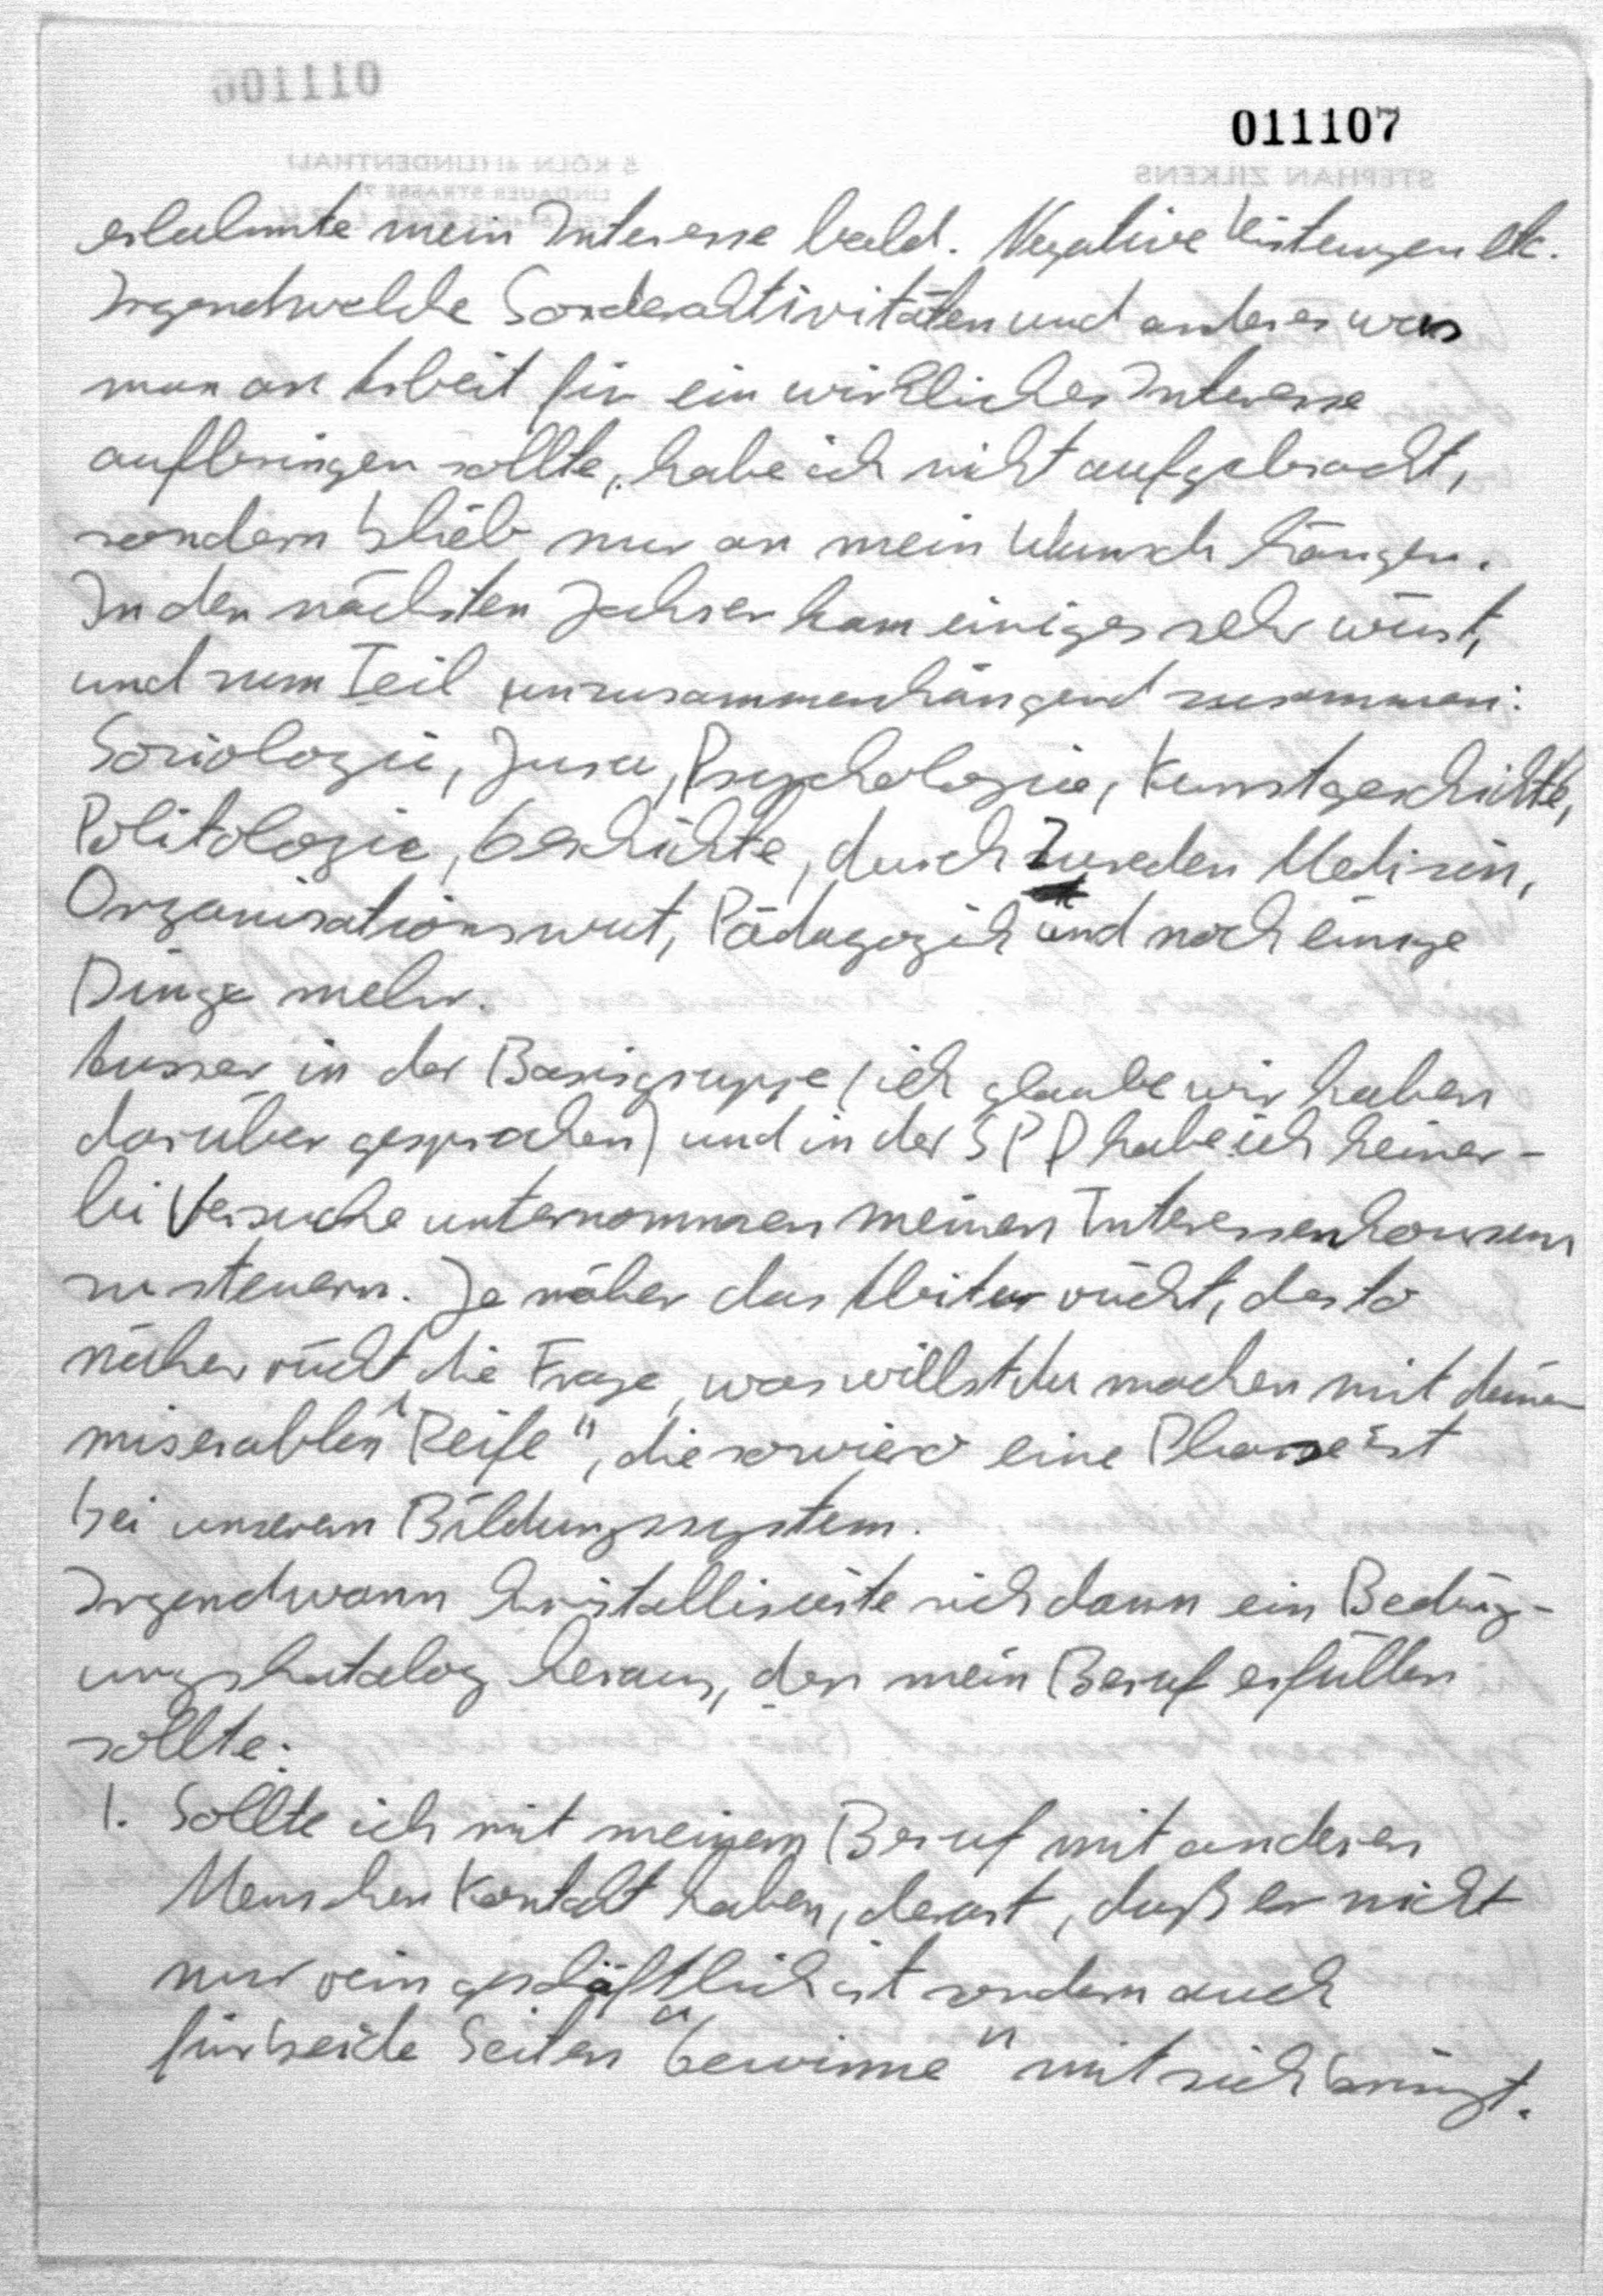 011107
erlahmte mein Interesse bald. Negative Leistungen etc.
Irgendwelche Sonderaktivitäten und anderes was
man an Arbeit für ein wirkliches Interesse
aufbringen sollte, habe ich nicht aufgebracht,
sondern blieb nur an mein Wunsch hängen.
In den nächsten Jahren kam einiges sehr wüst,
und zum Teil unzusammenhängend zusammen:
Soziologie, Jura, Psychologie, Kunstgeschichte,
Politologie, Geschichte, durch Zureden Medizin,
Organisationswut, Pädagogik und noch einige
Dinge mehr.
Ausser in der Basisgruppe (ich glaube wir haben
darüber gesprochen) und in der SPD habe ich keiner-
lei Versuche unternommen meinen Interessenkonsum
zu steuern. Je näher das Abitur rückt, desto
näher rückt die Frage, was willst du machen mit deiner
miserablen "Reife", die sowieso eine Phase ist
bei unserem Bildungssystem.
Irgendwann kristallisierte sich dann ein Beding-
ungskatalog heraus, den mein Beruf erfüllen
sollte:
1. Sollte ich mit meinem Beruf mit anderen
Menschen Kontakt haben, derart, daß er nicht
nur rein geschäftlich ist sondern auch
für beide Seiten "Gewinne" mit sich bringt.